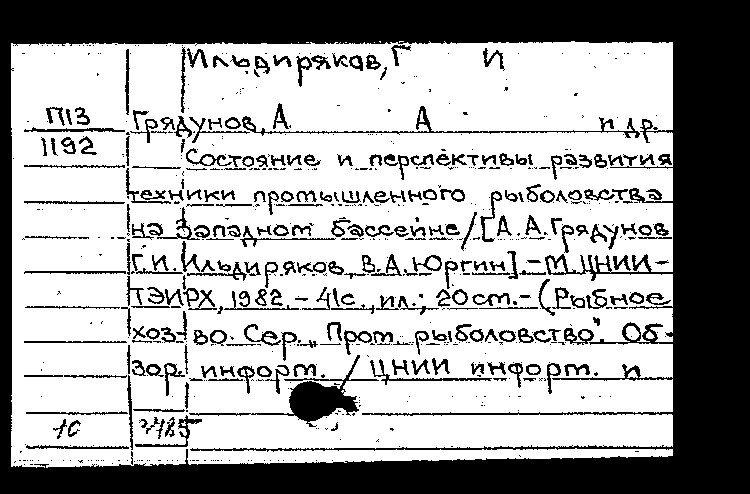 Ильдиряков, Г И
П13 Грядунов, А А и др.
1192 Состояние и перспективы развития
техники промышленного рыболовства
на Западном бассейне/[А.А.Грядунов
Г.И.Ильдиряков, В.А.Юргин].-М.ЦНИИ-
ТЭИРХ, 1982.- 41с.,ил.; 20см.-(Рыбное
хоз-во. Сер. „Пром. рыболовство". Об-
зор. информ. / ЦНИИ информ. и
10